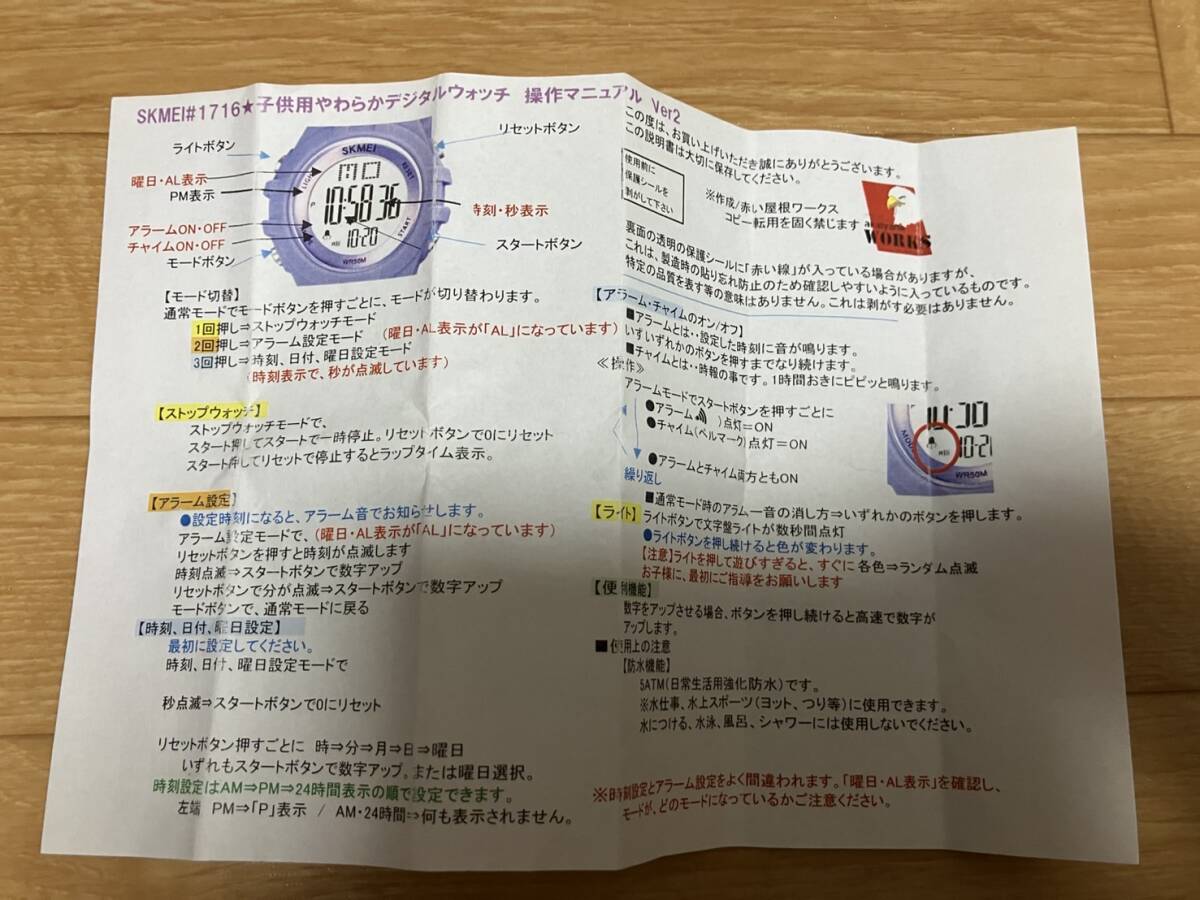 SKMEI#1716★子供用やわらかデジタルウォッチ 操作マニュアル Ver2
ライトボタン
曜日・AL表示
PM表示
アラームON・OFF
チャイムON・OFF
モードボタン
リセットボタン
時刻・秒表示
スタートボタン
SKMEI
LIGHT
MO
P
10:58 36
10-20
START
WR50M
【モード切替】
通常モードでモードボタンを押すごとに、モードが切り替わります。
1回押し⇒ストップウォッチモード
2回押し⇒アラーム設定モード (曜日・AL表示が「AL」になっています)
3回押し⇒時刻、日付、曜日設定モード
(時刻表示で、秒が点滅しています)
【ストップウォッチ】
ストップウォッチモードで、
スタート押してスタートで一時停止。リセットボタンで0にリセット
スタート押してリセットで停止するとラップタイム表示。
【アラーム設定】
●設定時刻になると、アラーム音でお知らせします。
アラーム設定モードで、(曜日・AL表示が「AL」になっています)
リセットボタンを押すと時刻が点滅します
時刻点滅⇒スタートボタンで数字アップ
リセットボタンで分が点滅⇒スタートボタンで数字アップ
モードボタンで、通常モードに戻る
【時刻、日付、曜日設定】
最初に設定してください。
時刻、日付、曜日設定モードで
秒点滅⇒スタートボタンで0にリセット
リセットボタン押すごとに 時⇒分⇒月⇒日⇒曜日
いずれもスタートボタンで数字アップ。または曜日選択。
時刻設定はAM⇒PM⇒24時間表示の順で設定できます。
左端 PM⇒「P」表示 / AM・24時間⇒何も表示されません。
この度は、お買い上げいただき誠にありがとうございます。
この説明書は大切に保存してください。
使用前に
保護シールを
剥がして下さい
※作成/赤い屋根ワークス
コピー転用を固く禁じます
WORKS
裏面の透明の保護シールに「赤い線」が入っている場合がありますが、
これは、製造時の貼り忘れ防止のため確認しやすいように入っているものです。
特定の品質を表す等の意味はありません。これは剥がす必要はありません。
【アラーム・チャイムのオン/オフ】
■アラームとは・・設定した時刻に音が鳴ります。
いすいずれかのボタンを押すまでなり続けます。
■チャイムとは・・時報の事です。1時間おきにピピッと鳴ります。
≪操作≫
アラームモードでスタートボタンを押すごとに
●アラーム )点灯=ON
●チャイム(ベルマーク)点灯=ON
●アラームとチャイム両方ともON
繰り返し
10:30
10-21
WR50M
■通常モード時のアラム一音の消し方⇒いずれかのボタンを押します。
【ライト】ライトボタンで文字盤ライトが数秒間点灯
●ライトボタンを押し続けると色が変わります。
【注意】ライトを押して遊びすぎると、すぐに 各色⇒ランダム点滅
お子様に、最初にご指導をお願いします
【便利機能】
数字をアップさせる場合、ボタンを押し続けると高速で数字が
アップします。
■使用上の注意
【防水機能】
5ATM(日常生活用強化防水)です。
※水仕事、水上スポーツ(ヨット、つり等)に使用できます。
水につける、水泳、風呂、シャワーには使用しないでください。
※時刻設定とアラーム設定をよく間違われます。「曜日・AL表示」を確認し、
モードが、どのモードになっているかご注意ください。